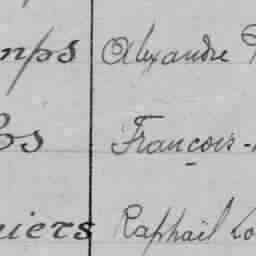 mps Alexandre
François-
niers Raphaël